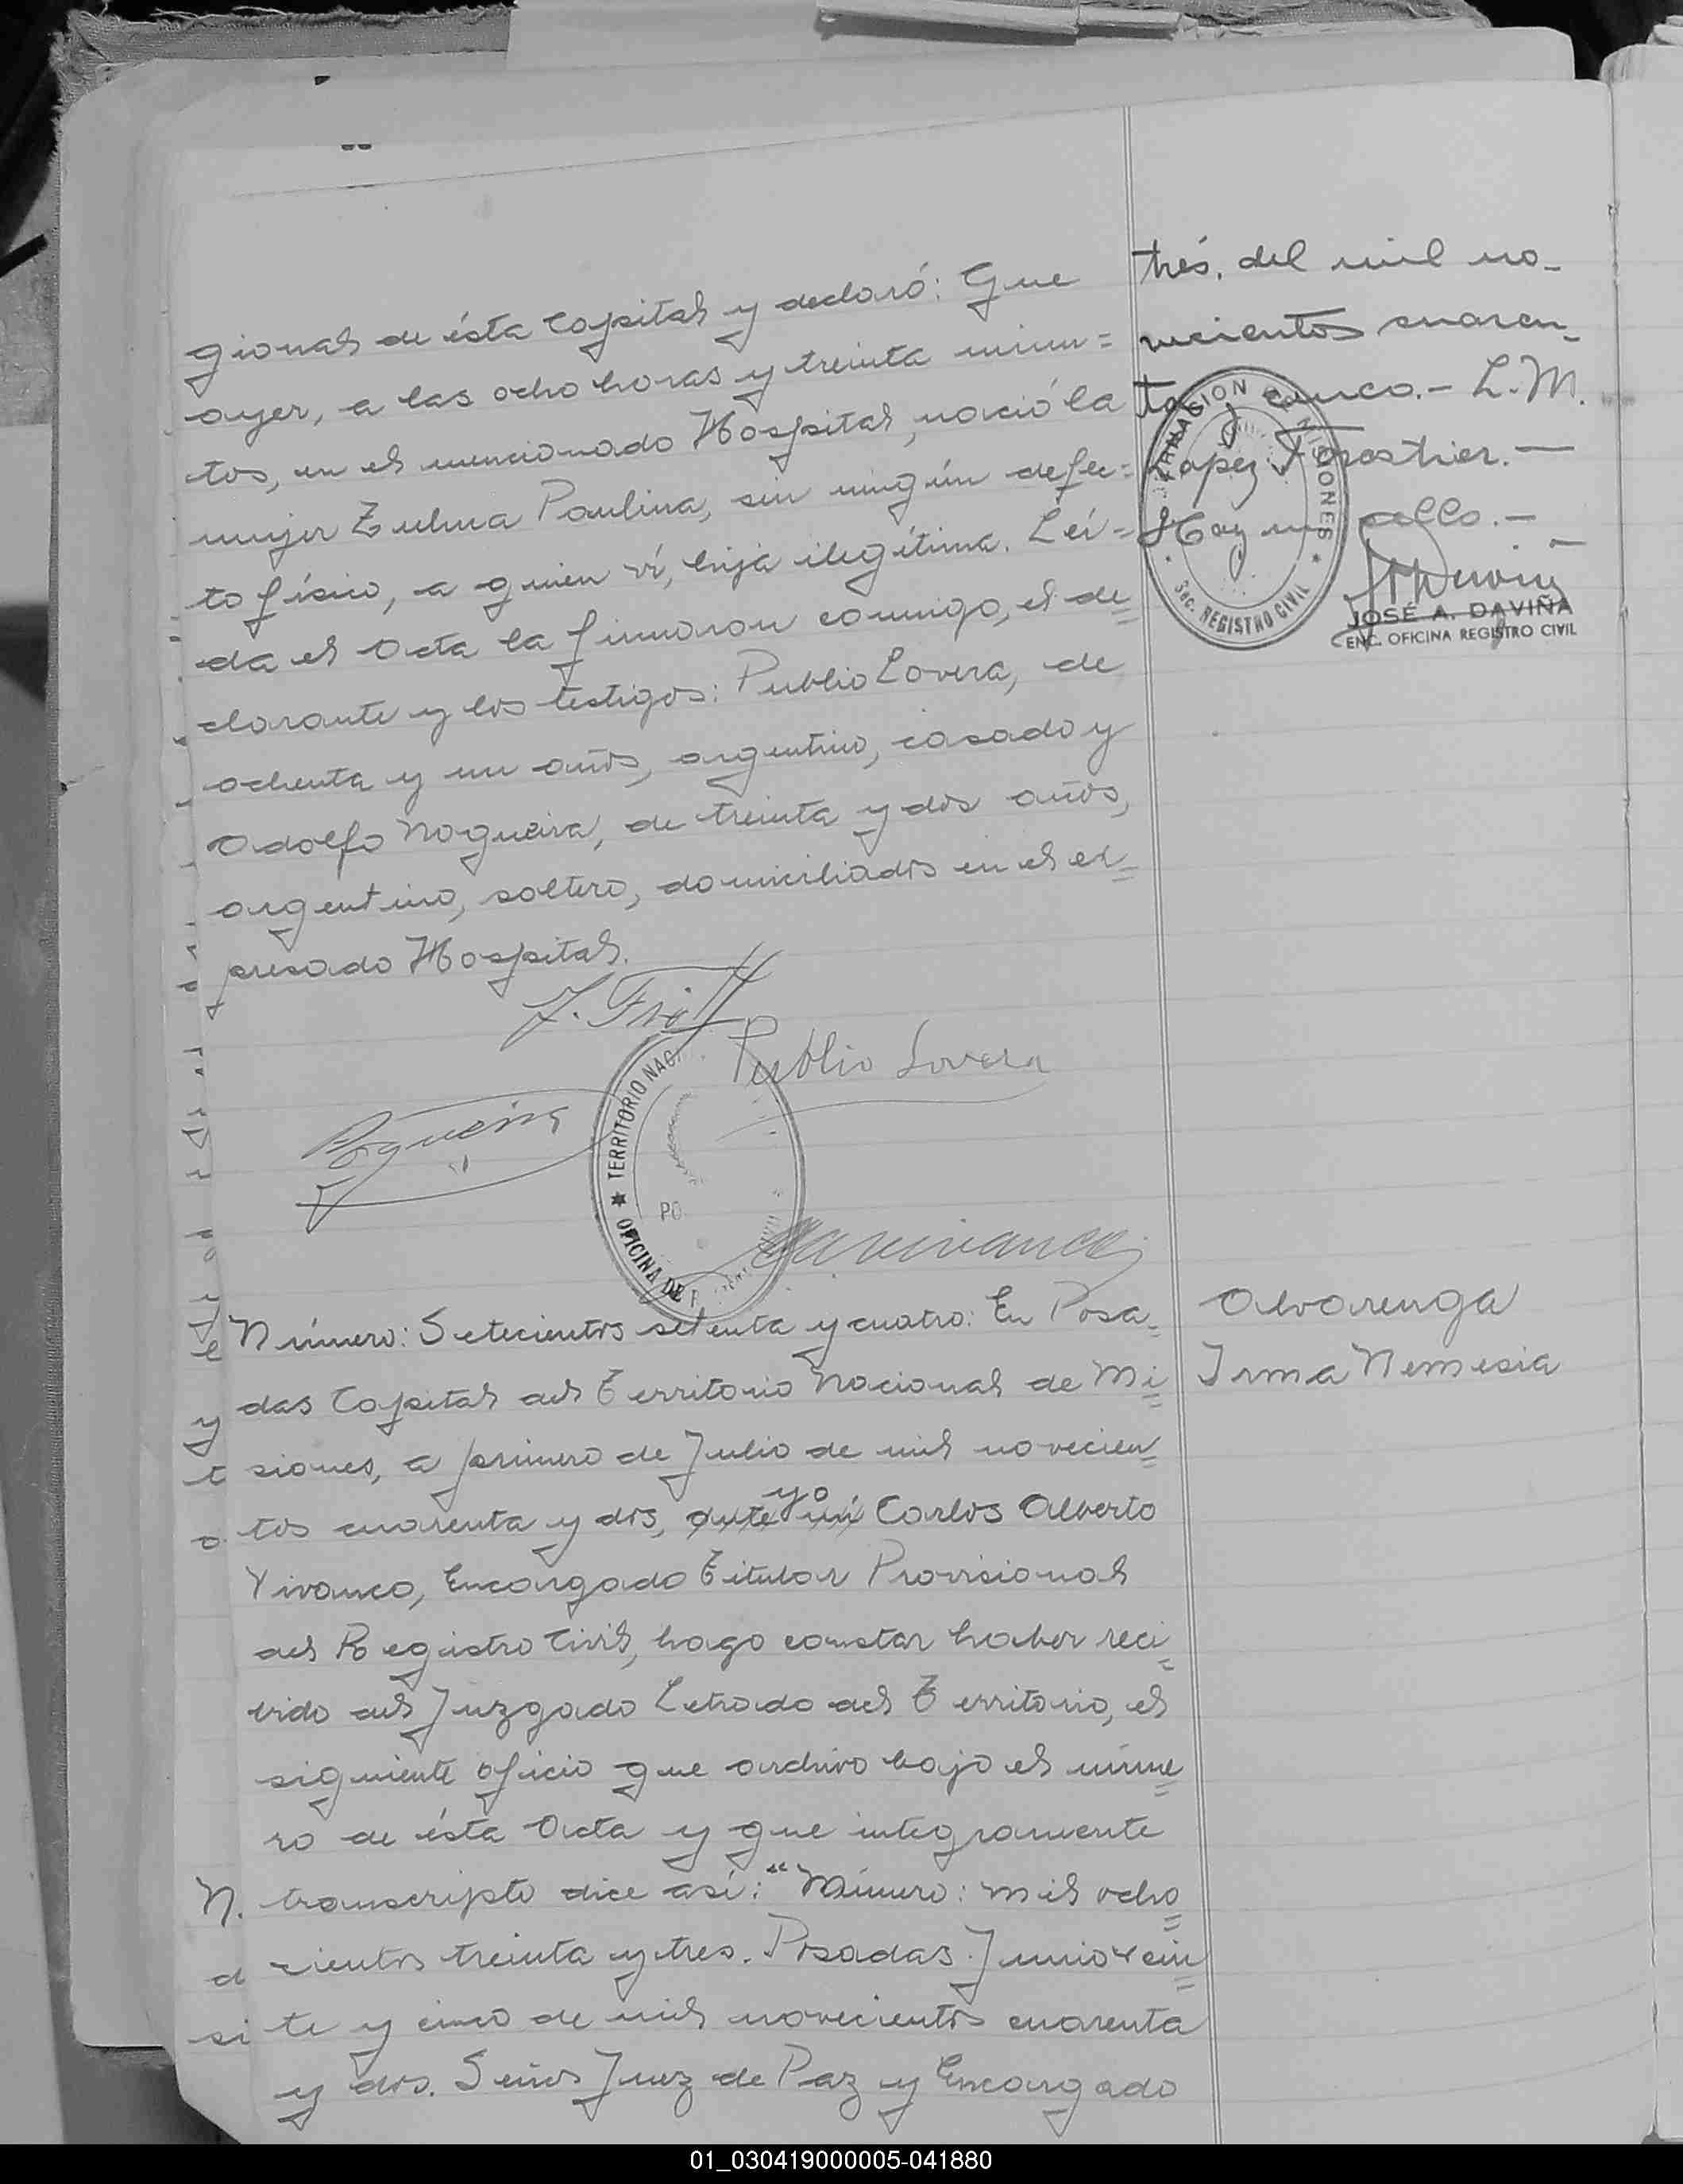 gional de ésta Capital y declaró: Que
ayer, a las ocho horas y treinta minu=
tos, en el mencionado Hospital, nació la
mujer Zulma Paulina, sin ningún defec=
to físico, a quien ví, hija ilegítima. Leí=
da el Acta la firmaron conmigo, el de=
clarante y los testigos: Publio Lovera, de
ochenta y un años, argentino, casado y
Adolfo Nogueira, de treinta y dos años,
argentino, soltero, domiciliados en el ex=
presado Hospital.
Publio Lovera
Nogueira
TERRITORIO NAC
PO
OFICINA DE
trés, del mil no-
vecientos cuaren-
ta y cinco.- L.M.
Lopez Forestier.-
Hay un sello.-
MISIONES
Sec. REGISTRO CIVIL
JOSÉ A. DAVIÑA
ENC. OFICINA REGISTRO CIVIL
Número: Setecientos setenta y cuatro: En Posa=
das Capital del Territorio Nacional de Mi=
siones, a primero de Julio de mil novecien=
tos cuarenta y dos, ante mí yo Carlos Alberto
Vivanco, Encargado Titular Provisional
del Registro Civil, hago constar haber reci=
bido del Juzgado Letrado del Territorio, el
siguiente oficio que archivo bajo el núme=
ro de ésta Acta y que integramente
transcripto dice así: "Número: mil ocho=
cientos treinta y tres. Posadas Junio vein=
te y cinco de mil novecientos cuarenta
y dos. Señor Juez de Paz y Encargado
Alvarenga
Irma Nemesia
01_030419000005-041880